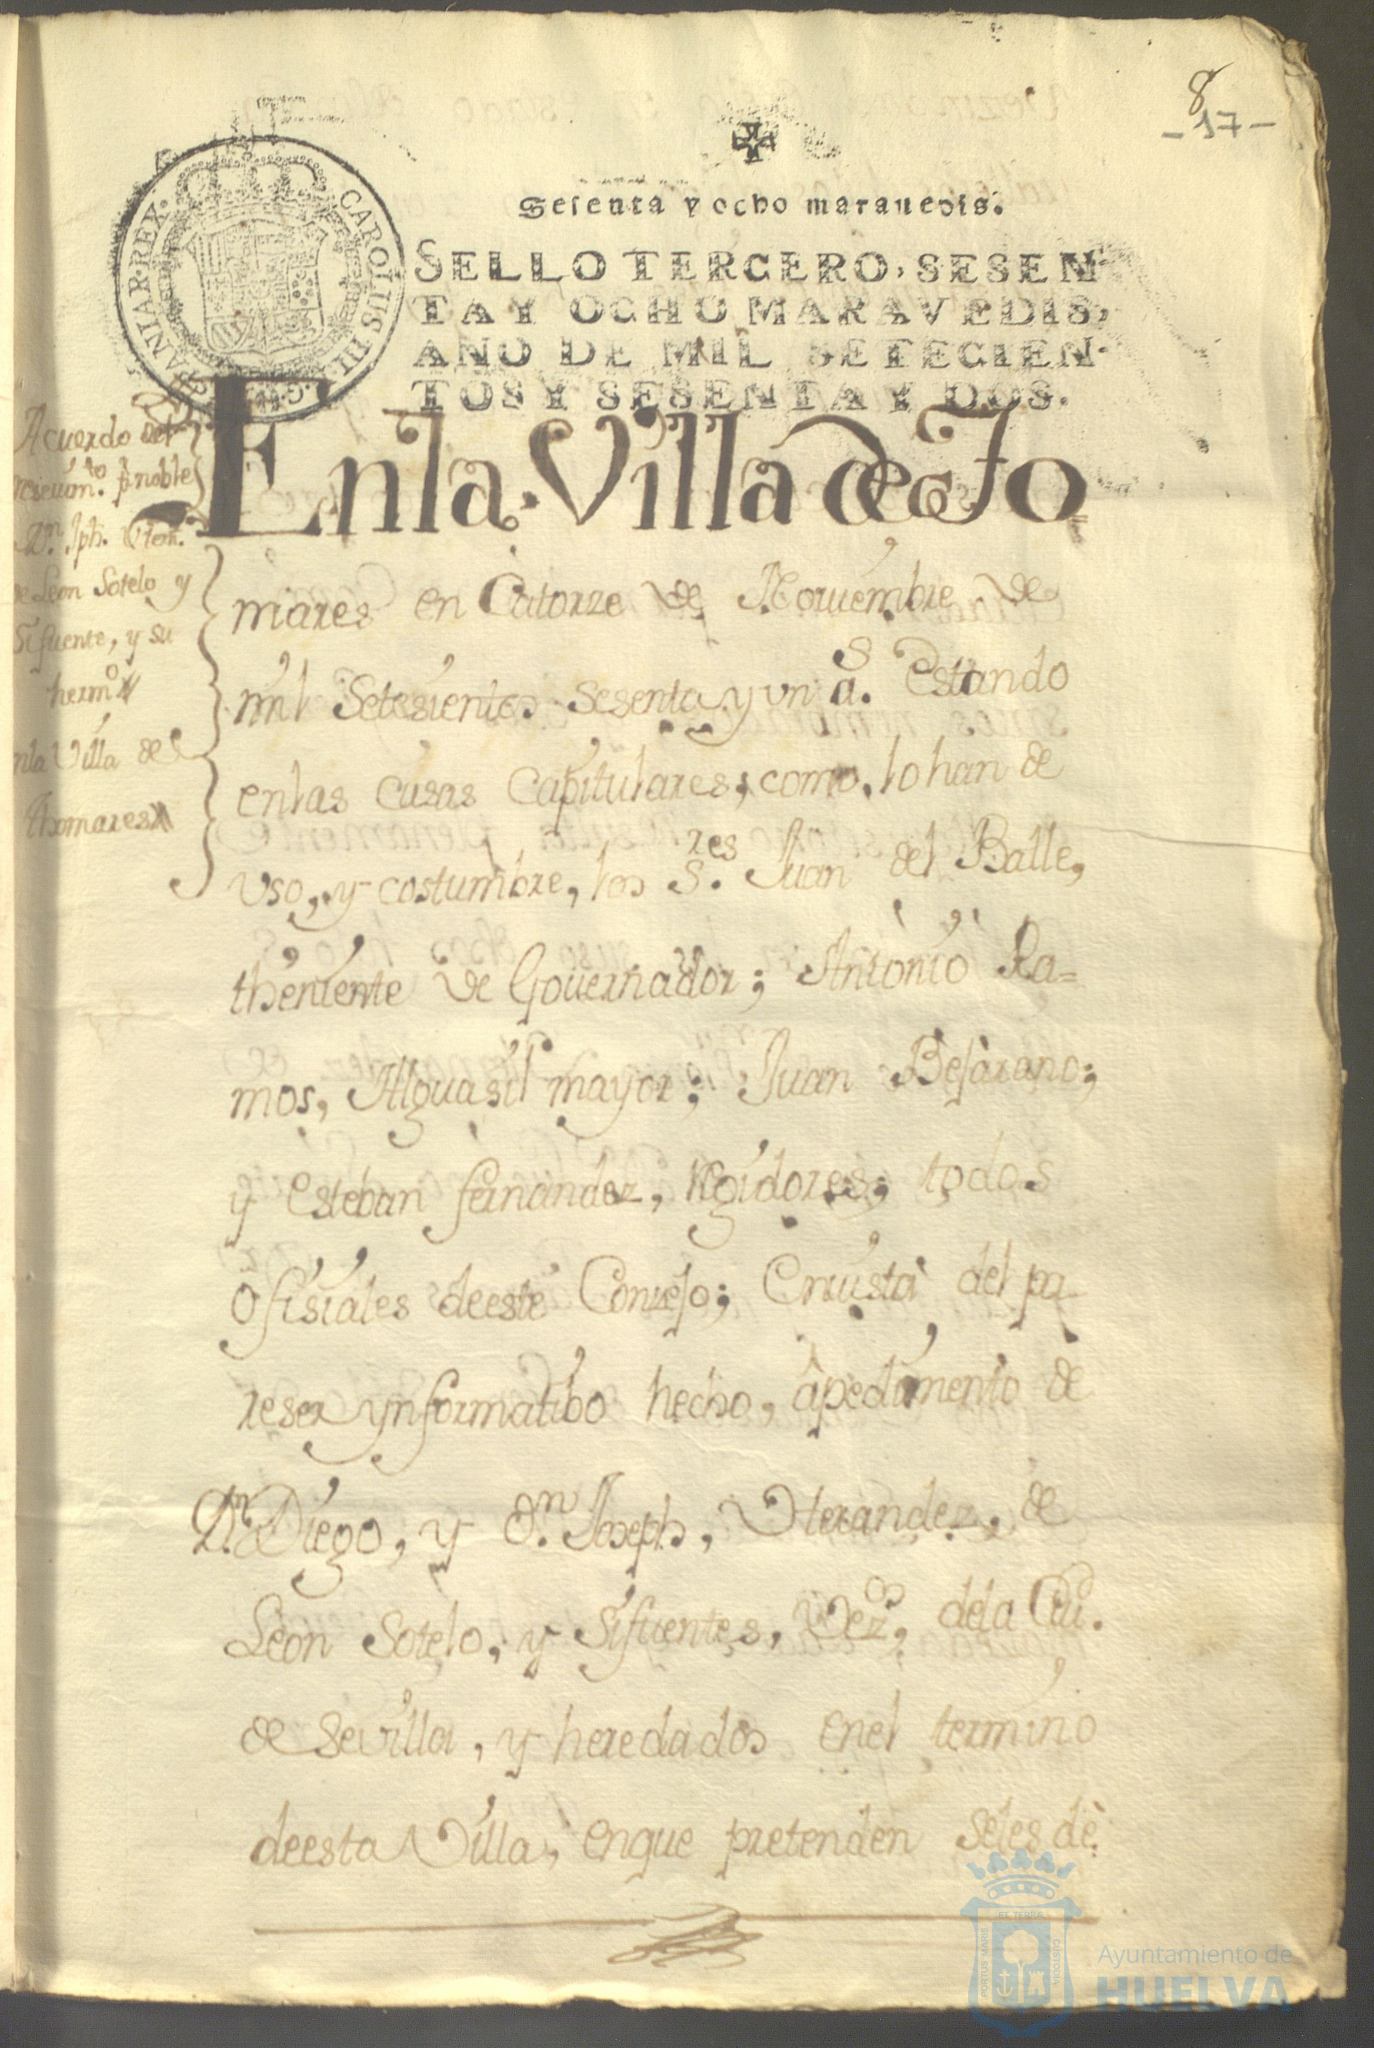 8
-17-
Sesenta y ocho marauedis.
SELLO TERCERO, SESEN
TAY OCHO MARAVEDIS,
AÑO DE MIL SETECIEN-
TOS Y SESENTA Y DOS.
CAROLUS III
HISPANIAR. REX.
Acuerdo del
p.r noble
a D.n Jph. Uter.
de Leon Sotelo y
Sifuente, y su
herm.o
nla Villa de
thomares
En la Villa de To
mares en Catorze de Nouiembre de
mil Setesientos sesenta y un a.s estando
enlas casas Capitulares, como lo han de
vso, y costumbre, los S.res Juan del Balle,
theniente de Gouernador; Antonio Ra=
mos, Alguasil mayor; Juan Besarano;
y esteban fernandez, Regidores; todos
ofisiales deeste Conzejo; En uista del pa-
reser ynformatibo hecho, a pedimento de
D.n Diego, y D.n Joseph, Uterandez, de
Leon Sotelo, y Sifuentes, Vez.os dela Ciu.
de Sevilla, y heredados enel termino
deesta Villa, enque pretenden seles dè
PORTUS MARIS
ET TERRÆ
CUSTODIA
Ayuntamiento de
HUELVA